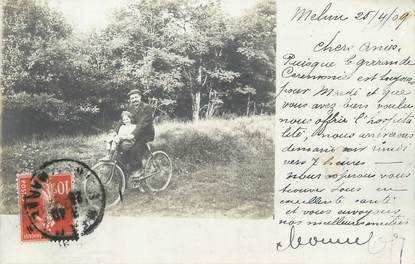 Melun 25/4/09
Chers Amis,
Puisque le
Cérémonie est toujours
pour Mardi et que
vous avez bien voulu
nous offrir l'hospita
lité, nous arriverons
demain soir
vers 7 heures
nous espérons vous
trouver tous en
excellente santé
et vous envoyons
nos meilleures amitiés
10